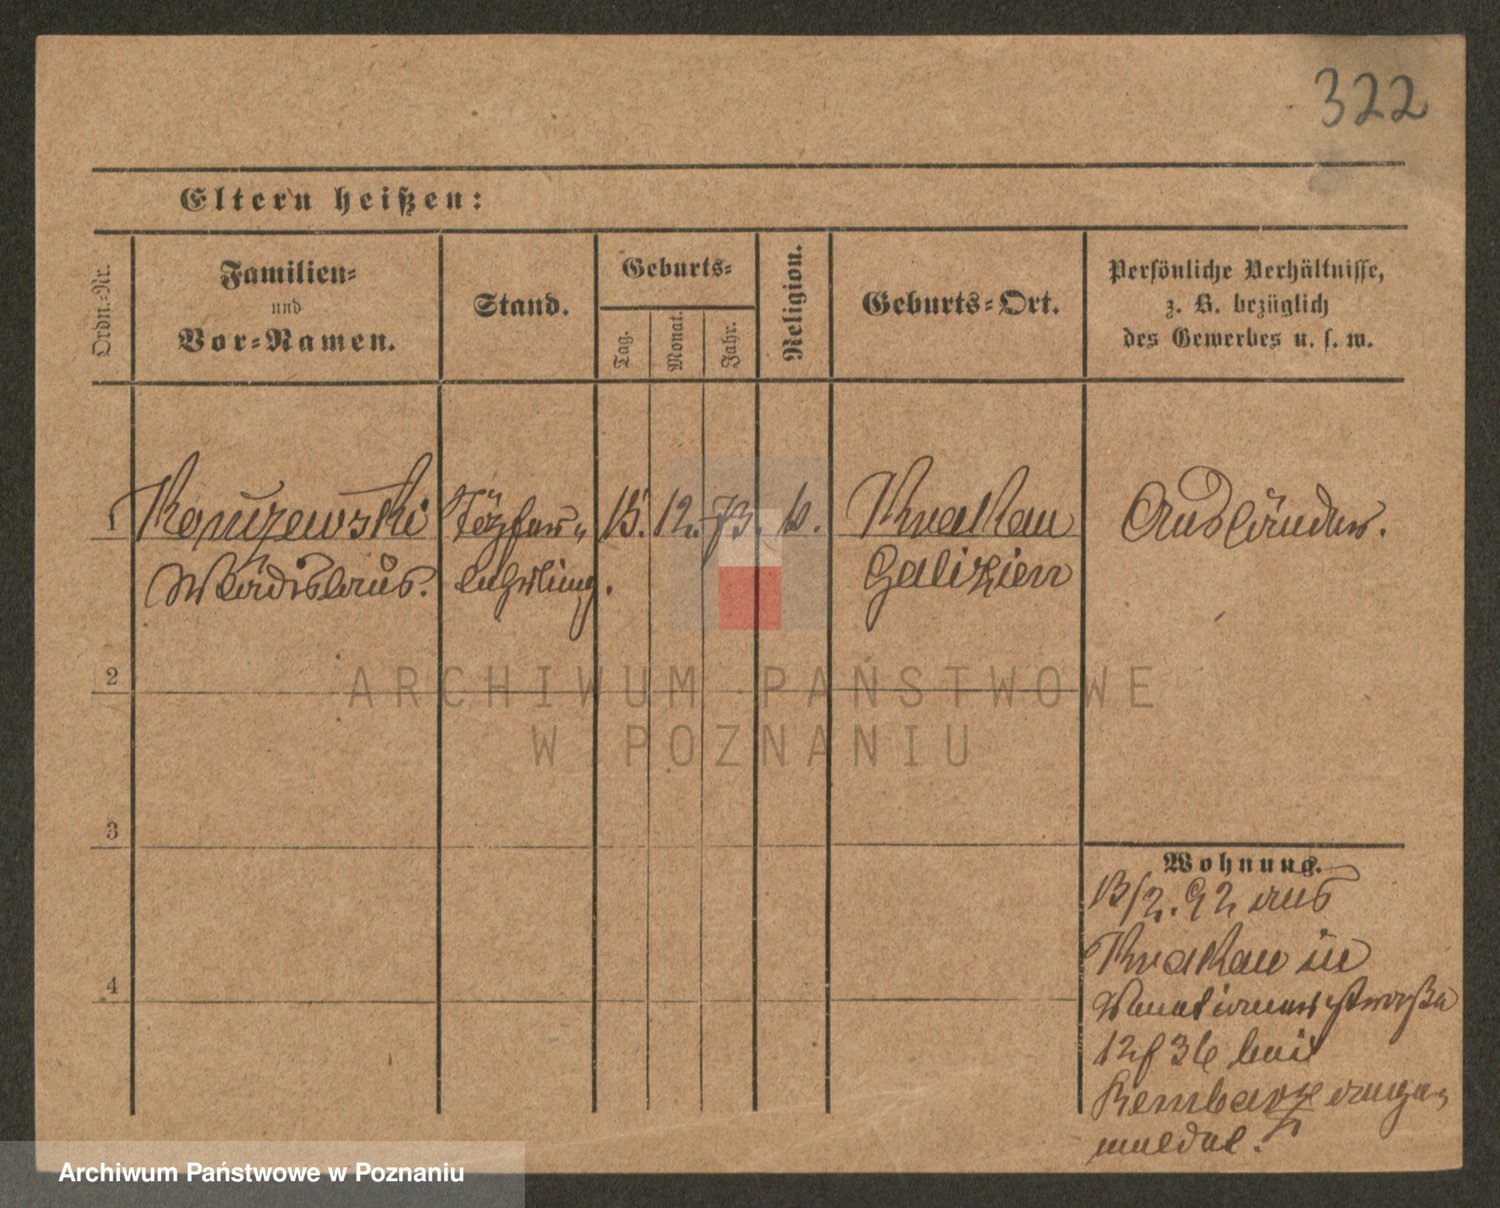 322
Eltern heißen:
Ordn.-Nr.
Familien-
und
Vor-Namen.
Stand.
Geburts-
Tag.
Monat.
Jahr.
Religion.
Geburts-Ort.
Persönliche Verhältnisse,
z. B. bezüglich
des Gewerbes u. s. w.
1
Töpfer-
lehrling.
15. 12. 73. k.
Krakau
Galizien
Ausländer.
Wladislaus.
2
3
4
Wohnung.
13/2. 92 aus
Krakau in
12/36 bei
ange-
meldet.
ARCHIWUM PAŃSTWOWE
W POZNANIU
Archiwum Państwowe w Poznaniu